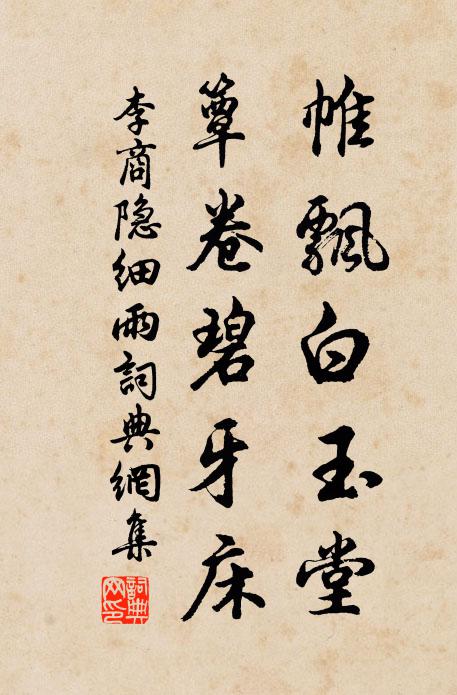 帷飄白玉堂
簟卷碧牙床
李商隐细雨詞典網集
詞典網印